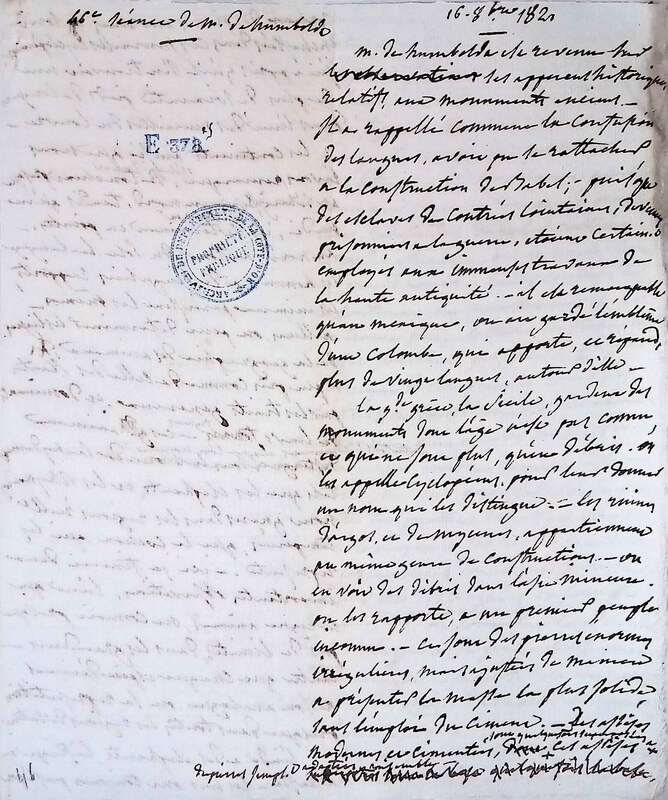 46e séance de M. de humboldt
16. 8bre 182
E 378 25
ARCHIVES DU DEPARTEMENT DE LA COTE D'OR
PROPRIÉTÉ PUBLIQUE
M. de humboldt est revenu sur
les apperçus historiques
relatifs, aux monuments anciens. —
Il a rappellé comment la Confusion
des langues, avoit pu se rattacher
a la Construction de Babel; — puisque
des esclaves de Contrées lointaines, devenus
prisonniers a la guerre, étaient certain.t
employés aux immenses travaux de
la haute antiquité. — il est remarquable
qu'au mexique, on ait gardé l'emblème
d'une Colombe, qui apporte, et répand,
plus de vingt langues, autour d'elle —
la gde grèce, la Sicile, gardent des
monuments dont l'âge n'est pas connu
et qui ne sont plus, qu'en débris. on
les appelle Cyclopéens, pour leur donner
un nom qui les distingue. — les ruines
d'argos, et de mycenes, appartiennent
au même genre de constructions. — on
en voit des débris dans l'asie mineure.
on les rapporte, a un premier peuple
inconnu. — ce sont des pierres énormes
irrégulières, mais ajustées de maniere
a présenter la masse la plus solide
sans l'emploi du ciment. — Les assises
modernes et cimentées, ces assises
sont quelquefois
de pierres simpl.
46